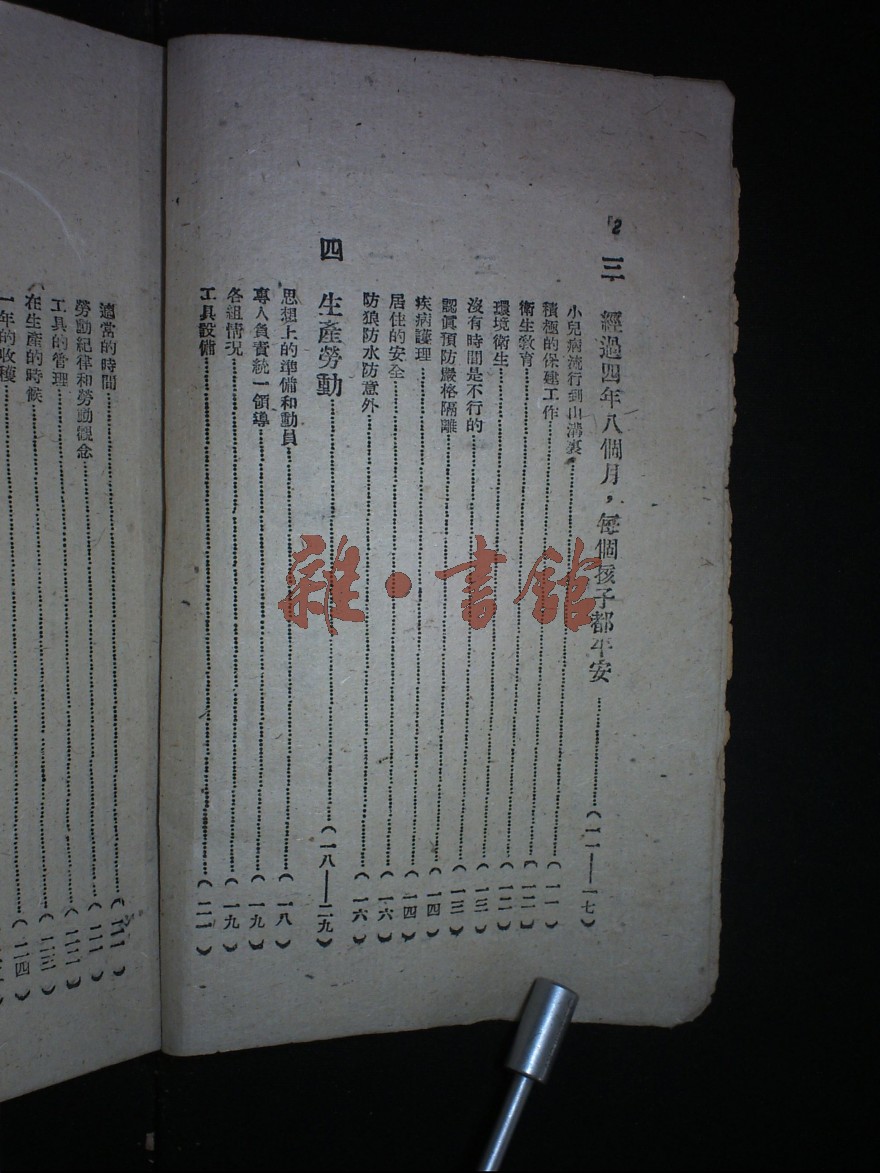 2
三 經過四年八個月，每個孩子都平安……（一一——一七）
小兒病流行到山溝裏……（一一）
積極的保建工作……（一一）
衛生教育……（一二）
環境衛生……（一二）
沒有時間是不行的……（一三）
認真預防嚴格隔離……（一三）
疾病護理……（一四）
居住的安全……（一六）
防狼防水防意外……（一六）
四 生產勞動……（一八——二九）
思想上的準備和動員……（一八）
專人負責統一領導……（一九）
各組情况……（一九）
工具設備……（二一）
適當的時間……
勞動紀律和勞動觀念……
工具的管理……
在生產的時候……
一年的收穫……
雜·書館